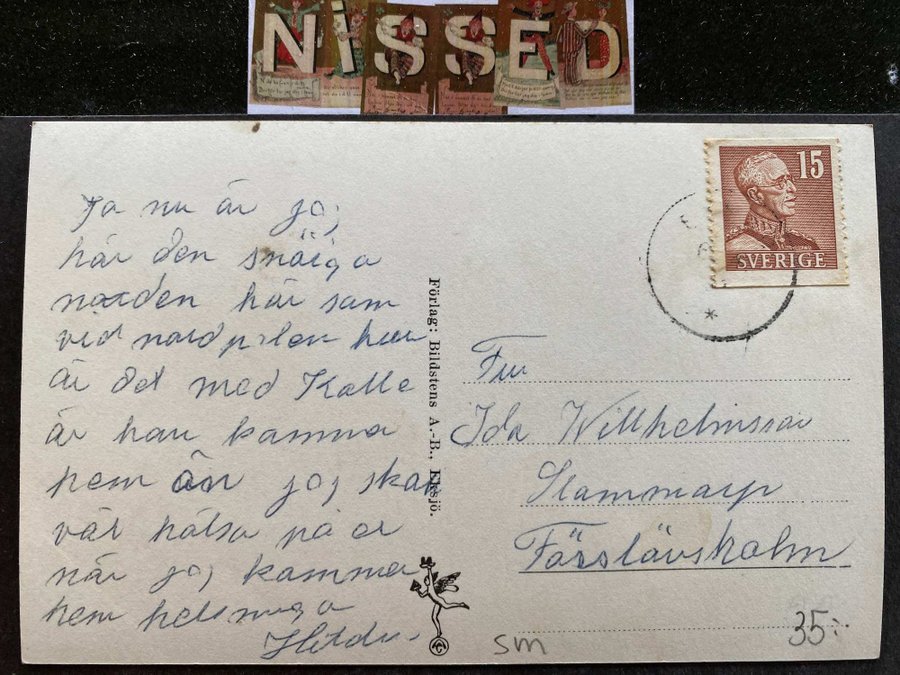 NISSED
Ja nu är jag
här den snöiga
norden här som
vid nordpolen hur
är det med Kalle
är han komma
hem än jag skall
väl hälsa på er
när jag komma
hem
Förlag: Bildstens A.-B., Eksjö.
15
SVERIGE
Fru
Ida Willhelmsson
Stammarp
Förslövsholm
sm
35:-